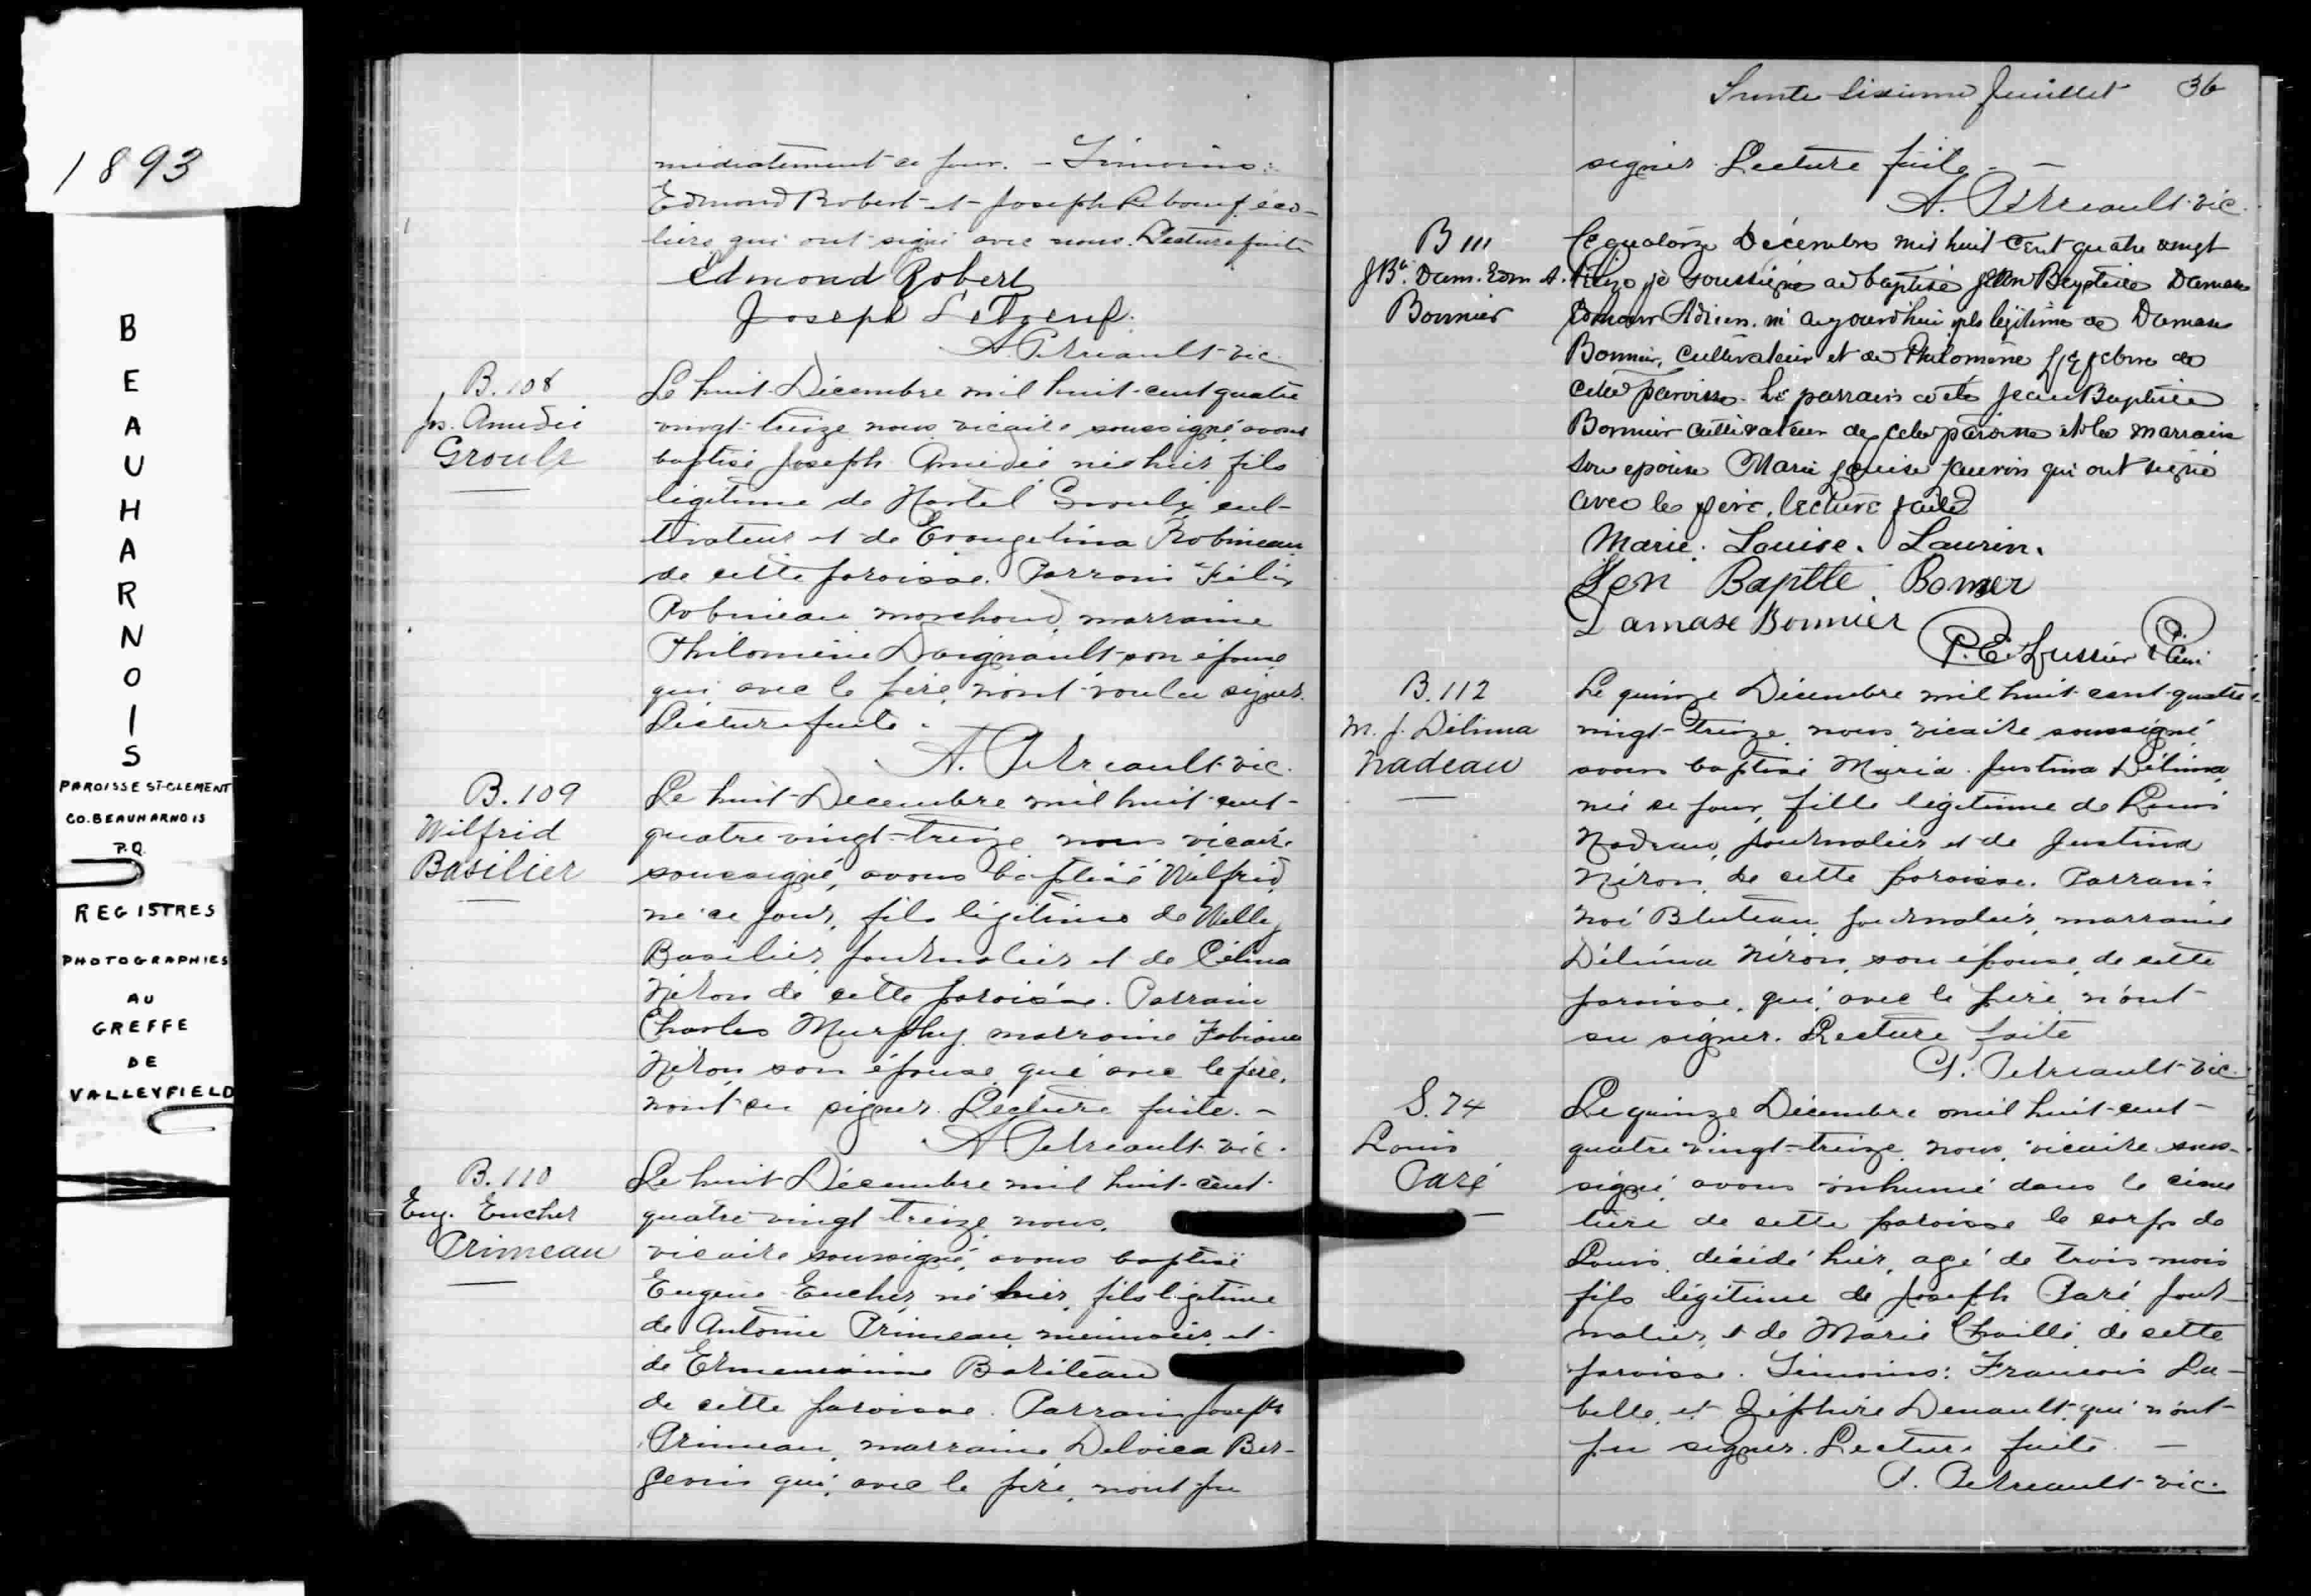 1893
BEAUHARNOIS
PAROISSE ST-CLEMENT
CO. BEAUHARNOIS
P.Q.
REGISTRES
PHOTOGRAPHIES
AU
GREFFE
DE
VALLEYFIELD
médiatement ce jour. - Témoins:
Edmond Robert et Joseph Leboeuf éco-
liers qui ont signé avec nous. Lecture faite
Edmond Robert
Joseph LeBoeuf.
A. Petreault vic.
B. 108
Js. Amédée
Groulx
Le huit Décembre mil huit-cent quatre
vingt-treize nous vicaire soussigné avons
baptisé Joseph Amédée né hier fils
légitime de Hartel Groulx cul-
tivateur et de Evangelina Robineau
de cette paroisse. Parrain Félix
Robineau marchand, marraine
Philomène Daignault son épouse
qui avec le père n'ont voulu signer.
Lecture faite.
A. Petreault vic.
B. 109
Wilfrid
Basilier
Le huit Decembre mil huit-cent-
quatre vingt-treize nous vicaire
soussigné, avons baptisé Wilfrid,
né ce jour, fils légitime de Willy
Basilier, journalier et de Célina
Néron de cette paroisse. Parrain
Charles Murphy, marraine Fabiana
Néron son épouse qui avec le père,
n'ont su signer. Lecture faite. -
A Petreault vic.
B. 110
Eug. Eucher
Primeau
Le huit Décembre mil huit-cent-
quatre vingt treize, nous,
vicaire soussigné, avons baptisé
Eugène Eucher, né hier, fils légitime
de Antoine Primeau, menuisier, et
de Ermenine Bariteau
de cette paroisse. Parrain Joseph
Primeau, marraine Delvica Ber-
gevin qui, avec le père, n'ont pu
Trente sixième feuillet 36
signer. Lecture faite. -
A. Petreault vic.
B 111
J Bte. Dam. Edm A.
Bonnier
Le quatorze Décembre mil huit cent quatre vingt
treize je soussigné ai baptisé Jean Baptiste Damase
Edmour Adrien. né aujourd'hui fils légitime de Damase
Bonnier, cultivateur et de Philomène Lefebvre de
cette paroisse. Le parrain a été Jean Baptiste
Bonnier cultivateur de cette paroisse et la marraine
son epouse Marie Louise Laurin qui ont signé
avec le père, lecture faite
Marie. Louise. Laurin.
Jen Baptte. Boner
Damase Bonnier
P. E. Lussier Ptre Curé
B. 112
M. J. Délima
Nadeau
Le quinze Décembre mil huit-cent-quatre-
vingt-treize, nous vicaire soussigné
avons baptisé Maria Justina Délima,
née ce jour, fille légitime de Louis
Nadeau, journalier et de Justina
Néron, de cette paroisse. Parrain:
Noé Bluteau, journalier, marraine
Délima Néron, son épouse, de cette
paroisse, qui, avec le père, n'ont
su signer. Lecture faite
A. Petreault vic.
S. 74
Louis
Paré
Le quinze Décembre mil huit-cent-
quatre vingt-treize, nous, vicaire sous-
signé, avons inhumé dans le cime
tière de cette paroisse le corps de
Louis, décédé hier, agé de trois mois
fils légitime de Joseph Paré jour-
nalier, et de Marie Chaillé, de cette
paroisse. Témoins: Francois La-
belle, et Zéphire Denault, qui n'ont
pu signer. Lecture faite. -
A. Petreault vic.